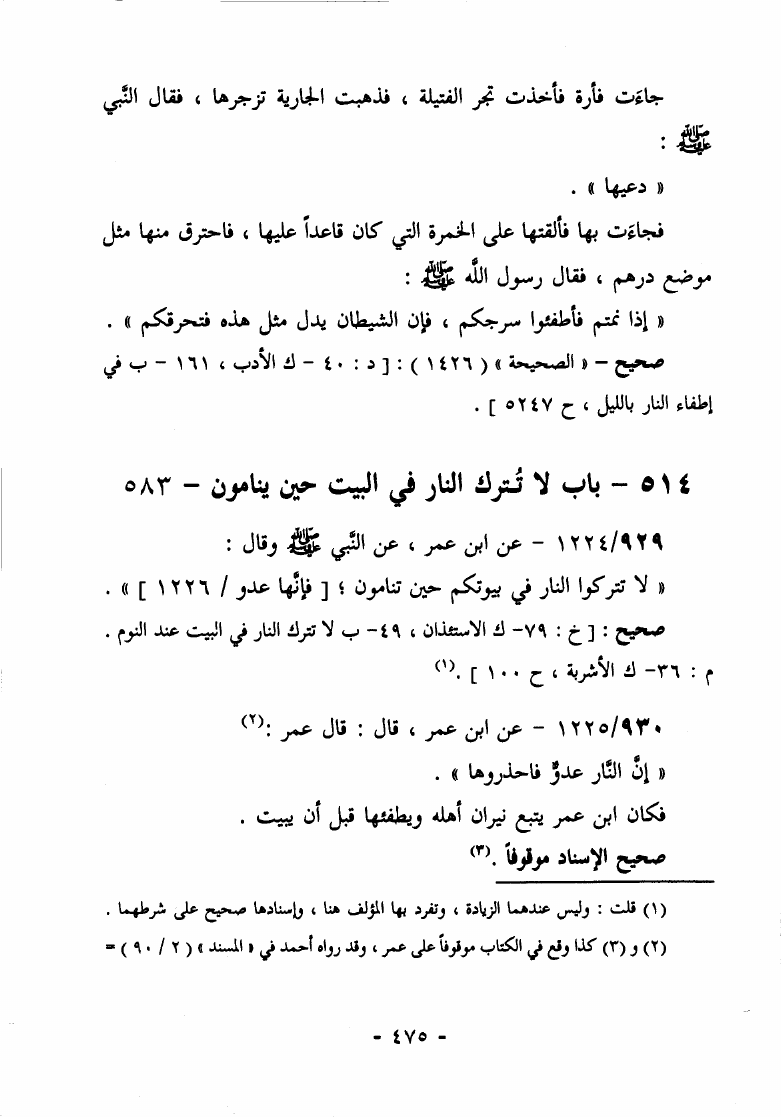 جاءَت فأرة فأخذت تجر الفتيلة ، فذهبت الجارية تزجرها ، فقال النَّبي
ﷺ :
« دعيها » .
فجاءَت بها فألقتها على الخمرة التي كان قاعداً عليها ، فاحترق منها مثل
موضع درهم ، فقال رسول اللَّه ﷺ :
« إذا نمتم فأطفئوا سرجكم ، فإن الشيطان يدل مثل هذه فتحرقكم » .
صحيح – « الصحيحة » ( ١٤٢٦ ) : [ د : ٤٠ – ك الأدب ، ١٦١ – ب في
إطفاء النار بالليل ، ح ٥٢٤٧ ] .
٥١٤ – باب لا تُترك النار في البيت حين ينامون – ٥٨٣
١٢٢٤/٩٢٩ – عن ابن عمر ، عن النَّبي ﷺ وقال :
« لا تتركوا النار في بيوتكم حين تنامون ؛ [ فإنَّها عدو / ١٢٢٦ ] » .
صحيح : [ خ : ٧٩– ك الاستئذان ، ٤٩– ب لا تترك النار في البيت عند النوم .
م : ٣٦– ك الأشربة ، ح ١٠٠ ] .(١)
١٢٢٥/٩٣٠ – عن ابن عمر ، قال : قال عمر :(٢)
« إنَّ النَّار عدوٌّ فاحذروها » .
فكان ابن عمر يتبع نيران أهله ويطفئها قبل أن يبيت .
صحيح الإسناد موقوفاً .(٣)
(١) قلت : وليس عندهما الزيادة ، وتفرد بها المؤلف هنا ، وإسنادها صحيح على شرطهما .
(٢) و (٣) كذا وقع في الكتاب موقوفاً على عمر ، وقد رواه أحمد في « المسند » ( ٢ / ٩٠ ) =
- ٤٧٥ -